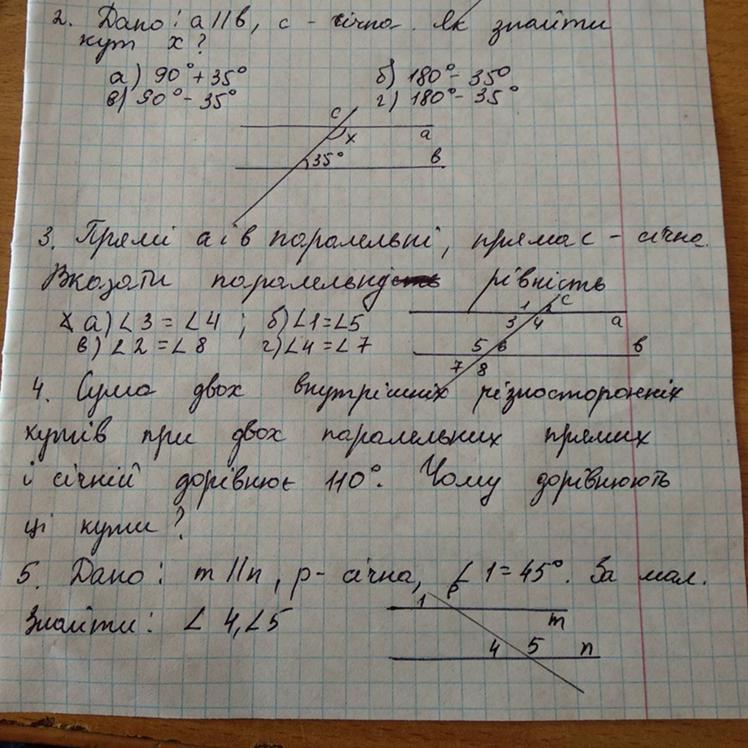 2. Дано: а//в, с - січна. Як знайти
кут х?
а) 90° + 35° б) 180° - 35°
в) 90° - 35° г) 180° - 35°
с
х а
35° в
3. Прямі а і в паралельні, пряма с - січна.
Вказати паралельн рівність
а) ∠3 = ∠4 ; б) ∠1 = ∠5
в) ∠2 = ∠8 г) ∠4 = ∠7
1 2 с
3 4 а
5 6 в
7 8
4. Сума двох внутрішніх різносторонніх
кутів при двох паралельних прямих
і січній дорівнює 110°. Чому дорівнюють
ці кути?
5. Дано: m//n, p - січна, ∠1 = 45°. За мал.
Знайти: ∠4, ∠5
1 p
m
4 5 n